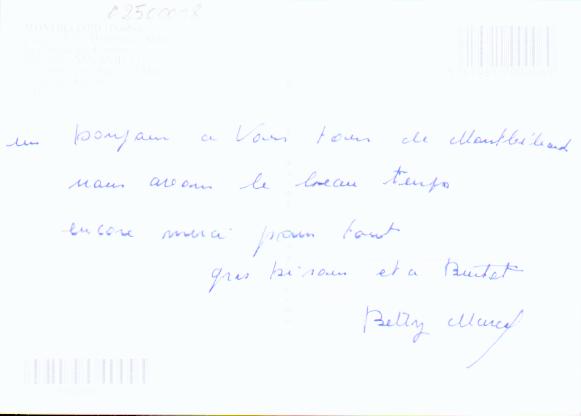 025000-2
MONTBELIARD (Doubs)
un bonjour a Vous tous de Montbéliard
nous avons le beau temps
encore merci pour tout
gros bisous et a Bientot
Betty Marcel